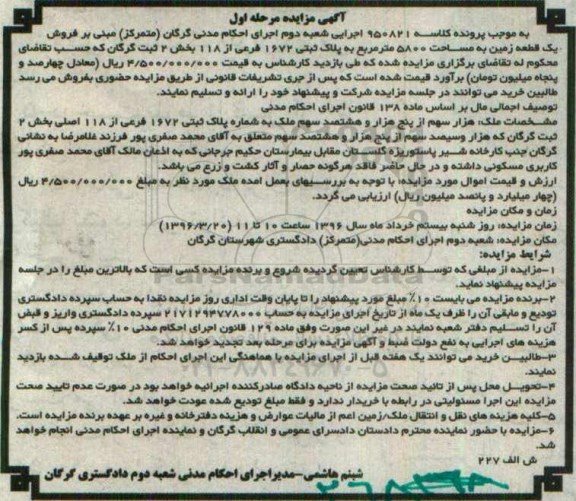 آگهی مزایده مرحله اول
به موجب پرونده کلاسه ۹۵۰۸۲۱ اجرایی شعبه دوم اجرای احکام مدنی گرگان (متمرکز) مبنی بر فروش
یک قطعه زمین به مساحت ۵۸۰۰ مترمربع به پلاک ثبتی ۱۶۷۲ فرعی از ۱۱۸ بخش ۲ ثبت گرگان که حسب تقاضای
محکوم له تقاضای برگزاری مزایده شده که طی بازدید کارشناس به قیمت ۴/۵۰۰/۰۰۰/۰۰۰ ریال (معادل چهارصد و
پنجاه میلیون تومان) برآورد قیمت شده است که پس از جری تشریفات قانونی از طریق مزایده حضوری بفروش می رسد
طالبین خرید می توانند در جلسه مزایده شرکت و پیشنهاد خود را ارائه و تسلیم نمایند.
توصیف اجمالی مال بر اساس ماده ۱۳۸ قانون اجرای احکام مدنی
مشخصات ملک: هزار سهم از پنج هزار و هشتصد سهم ملک به شماره پلاک ثبتی ۱۶۷۲ فرعی از ۱۱۸ اصلی بخش ۲
ثبت گرگان که هزار وسیصد سهم از پنج هزار و هشتصد سهم متعلق به آقای محمد صفری پور فرزند غلامرضا به نشانی
گرگان جنب کارخانه شیر پاستوریزه گلستان مقابل بیمارستان حکیم جرجانی که به اذعان مالک آقای محمد صفری پور
کاربری مسکونی داشته و در حال حاضر فاقد هرگونه حصار و آثار کشت و زرع می باشد.
ارزش و قیمت اموال مورد مزایده: با توجه به بررسیهای بعمل امده ملک مورد نظر به مبلغ ۴/۵۰۰/۰۰۰/۰۰۰ ریال
(چهار میلیارد و پانصد میلیون ریال) ارزیابی می گردد.
زمان و مکان مزایده
زمان مزایده: روز شنبه بیستم خرداد ماه سال ۱۳۹۶ ساعت ۱۰ تا ۱۱ (۱۳۹۶/۳/۲۰)
مکان مزایده: شعبه دوم اجرای احکام مدنی(متمرکز) دادگستری شهرستان گرگان
شرایط مزایده:
۱-مزایده از مبلغی که توسط کارشناس تعیین گردیده شروع و برنده مزایده کسی است که بالاترین مبلغ را در جلسه
مزایده پیشنهاد نماید.
۲-برنده مزایده می بایست ۱۰٪ مبلغ مورد پیشنهاد را تا پایان وقت اداری روز مزایده نقدا به حساب سپرده دادگستری
تودیع و مابقی آن را ظرف یک ماه از تاریخ اجرای مزایده به حساب ۲۱۷۱۲۹۴۷۷۸۰۰۰ سپرده دادگستری واریز و قبض
آن را تسلیم دفتر شعبه نمایند در غیر این صورت وفق ماده ۱۲۹ قانون اجرای احکام مدنی ۱۰٪ سپرده پس از کسر
هزینه های اجرایی به نفع دولت ضبط و آگهی مزایده برای مرحله بعد تجدید خواهد شد.
۳-طالبین خرید می توانند یک هفته قبل از اجرای مزایده با هماهنگی این اجرای احکام از ملک توقیف شده بازدید
نمایند.
۴-تحویل محل پس از تائید صحت مزایده از ناحیه دادگاه صادرکننده اجرائیه خواهد بود در صورت عدم تایید صحت
مزایده این اجرا مسئولیتی در رابطه با خریدار ندارد و فقط مبلغ تودیع شده عودت خواهد شد.
۵-کلیه هزینه های نقل و انتقال ملک/زمین اعم از مالیات عوارض و هزینه دفترخانه و غیره بر عهده برنده مزایده است.
۶-مزایده با حضور نماینده محترم دادستان دادسرای عمومی و انقلاب گرگان و نماینده اجرای احکام مدنی انجام خواهد
شد.
ش الف ۲۲۷
شبنم هاشمی-مدیراجرای احکام مدنی شعبه دوم دادگستری گرگان